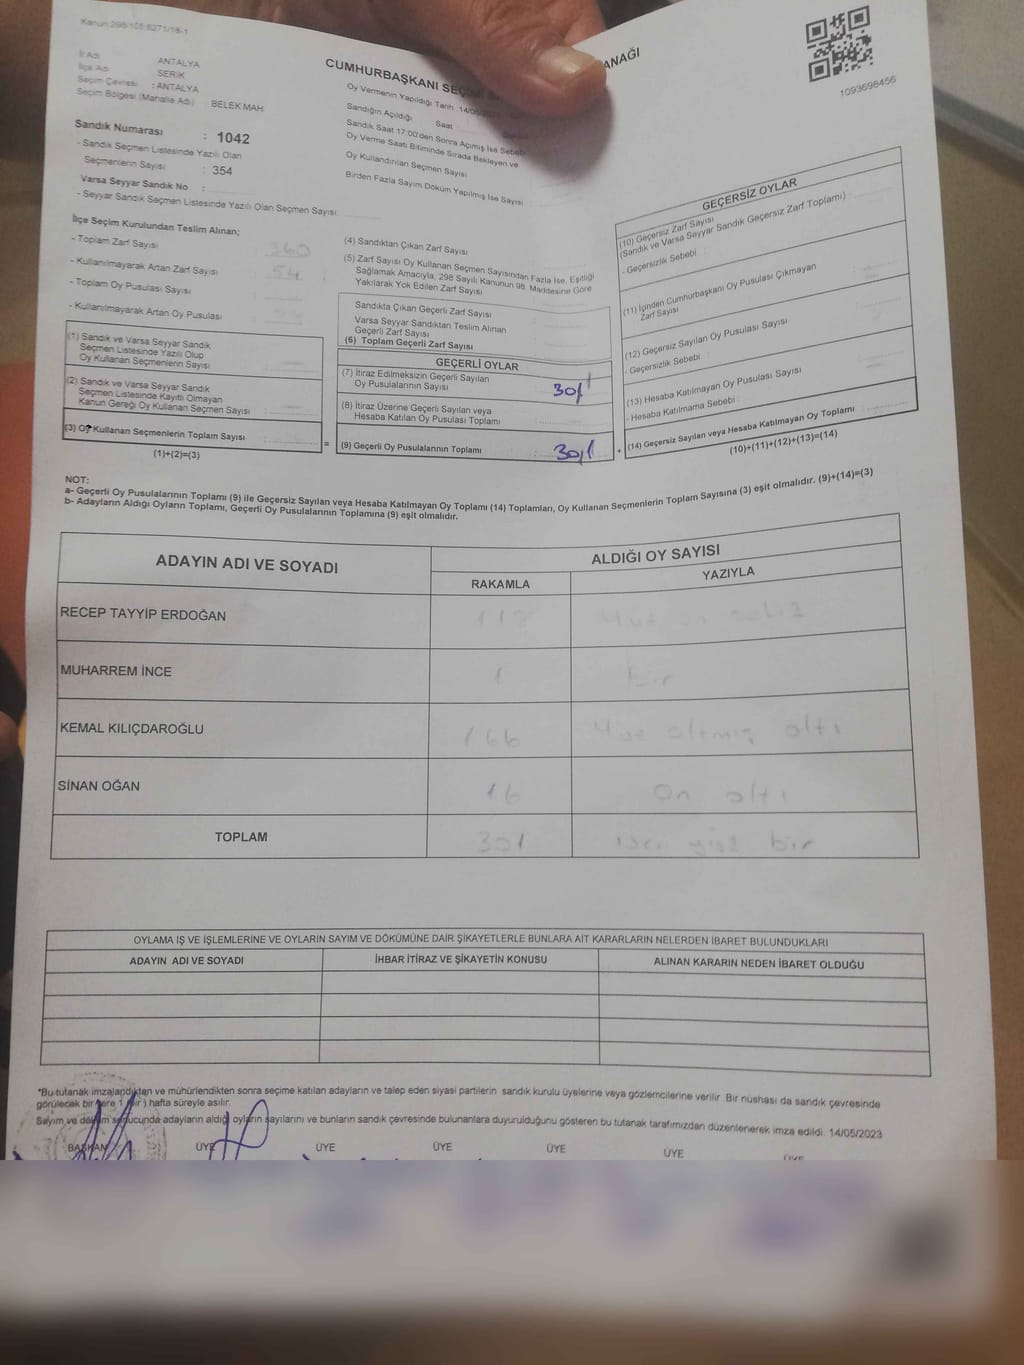 Kanun:298/105:6271/18-1
İl Adı ANTALYA
İlçe Adı SERİK
Seçim Çevresi : ANTALYA
Seçim Bölgesi (Mahalle Adı) BELEK MAH
Sandık Numarası : 1042
- Sandık Seçmen Listesinde Yazılı Olan
Seçmenlerin Sayısı : 354
Varsa Seyyar Sandık No :
- Seyyar Sandık Seçmen Listesinde Yazılı Olan Seçmen Sayısı
CUMHURBAŞKANI SEÇİ ANAĞI
Oy Vermenin Yapıldığı Tarih 14/05
Sandığın Açıldığı Saat
Sandık Saat 17:00'den Sonra Açımış İse Sebebi
Oy Verme Saati Bitiminde Sırada Bekleyen ve
Oy Kullandırılan Seçmen Sayısı
Birden Fazla Sayım Döküm Yapılmış İse Sayısı
1093698456
İlçe Seçim Kurulundan Teslim Alınan;
- Toplam Zarf Sayısı 360
- Kullanılmayarak Artan Zarf Sayısı 54
- Toplam Oy Pusulası Sayısı
- Kullanılmayarak Artan Oy Pusulası
(1) Sandık ve Varsa Seyyar Sandık
Seçmen Listesinde Yazılı Olup
Oy Kullanan Seçmenlerin Sayısı
(2) Sandık ve Varsa Seyyar Sandık
Seçmen Listesinde Kayıtlı Olmayan
Kanun Gereği Oy Kullanan Seçmen Sayısı :
(3) Oy Kullanan Seçmenlerin Toplam Sayısı :
(1)+(2)=(3)
=
(4) Sandıktan Çıkan Zarf Sayısı
(5) Zarf Sayısı Oy Kullanan Seçmen Sayısından Fazla İse, Eşitliği
Sağlamak Amacıyla, 298 Sayılı Kanunun 98. Maddesine Göre
Yakılarak Yok Edilen Zarf Sayısı
Sandıkta Çıkan Geçerli Zarf Sayısı
Varsa Seyyar Sandıktan Teslim Alınan
Geçerli Zarf Sayısı
(6) Toplam Geçerli Zarf Sayısı
GEÇERLİ OYLAR
(7) İtiraz Edilmeksizin Geçerli Sayılan
Oy Pusulalarının Sayısı 301
(8) İtiraz Üzerine Geçerli Sayılan veya
Hesaba Katılan Oy Pusulası Toplamı
(9) Geçerli Oy Pusulalarının Toplamı 301
+
GEÇERSİZ OYLAR
(10) Geçersiz Zarf Sayısı
(Sandık ve Varsa Seyyar Sandık Geçersiz Zarf Toplamı)
- Geçersizlik Sebebi :
(11) İçinden Cumhurbaşkanı Oy Pusulası Çıkmayan
Zarf Sayısı
(12) Geçersiz Sayılan Oy Pusulası Sayısı
- Geçersizlik Sebebi :
(13) Hesaba Katılmayan Oy Pusulası Sayısı
- Hesaba Katılmama Sebebi :
(14) Geçersiz Sayılan veya Hesaba Katılmayan Oy Toplamı :
(10)+(11)+(12)+(13)=(14)
NOT:
a- Geçerli Oy Pusulalarının Toplamı (9) ile Geçersiz Sayılan veya Hesaba Katılmayan Oy Toplamı (14) Toplamları, Oy Kullanan Seçmenlerin Toplam Sayısına (3) eşit olmalıdır. (9)+(14)=(3)
b- Adayların Aldığı Oyların Toplamı, Geçerli Oy Pusulalarının Toplamına (9) eşit olmalıdır.
ADAYIN ADI VE SOYADI ALDIĞI OY SAYISI
RAKAMLA YAZIYLA
RECEP TAYYİP ERDOĞAN 118 Yüz on sekiz
MUHARREM İNCE 1 Bir
KEMAL KILIÇDAROĞLU 166 Yüz altmış altı
SİNAN OĞAN 16 On altı
TOPLAM 301 üç yüz bir
OYLAMA İŞ VE İŞLEMLERİNE VE OYLARIN SAYIM VE DÖKÜMÜNE DAİR ŞİKAYETLERLE BUNLARA AİT KARARLARIN NELERDEN İBARET BULUNDUKLARI
ADAYIN ADI VE SOYADI İHBAR İTİRAZ VE ŞİKAYETİN KONUSU ALINAN KARARIN NEDEN İBARET OLDUĞU
*Bu tutanak imzalandıktan ve mühürlendikten sonra seçime katılan adayların ve talep eden siyasi partilerin sandık kurulu üyelerine veya gözlemcilerine verilir. Bir nüshası da sandık çevresinde
görülecek bir yere 1 (bir) hafta süreyle asılır.
Sayım ve döküm sonucunda adayların aldığı oyların sayılarını ve bunların sandık çevresinde bulunanlara duyurulduğunu gösteren bu tutanak tarafımızdan düzenlenerek imza edildi. 14/05/2023
BAŞKAN ÜYE ÜYE ÜYE ÜYE ÜYE ÜYE